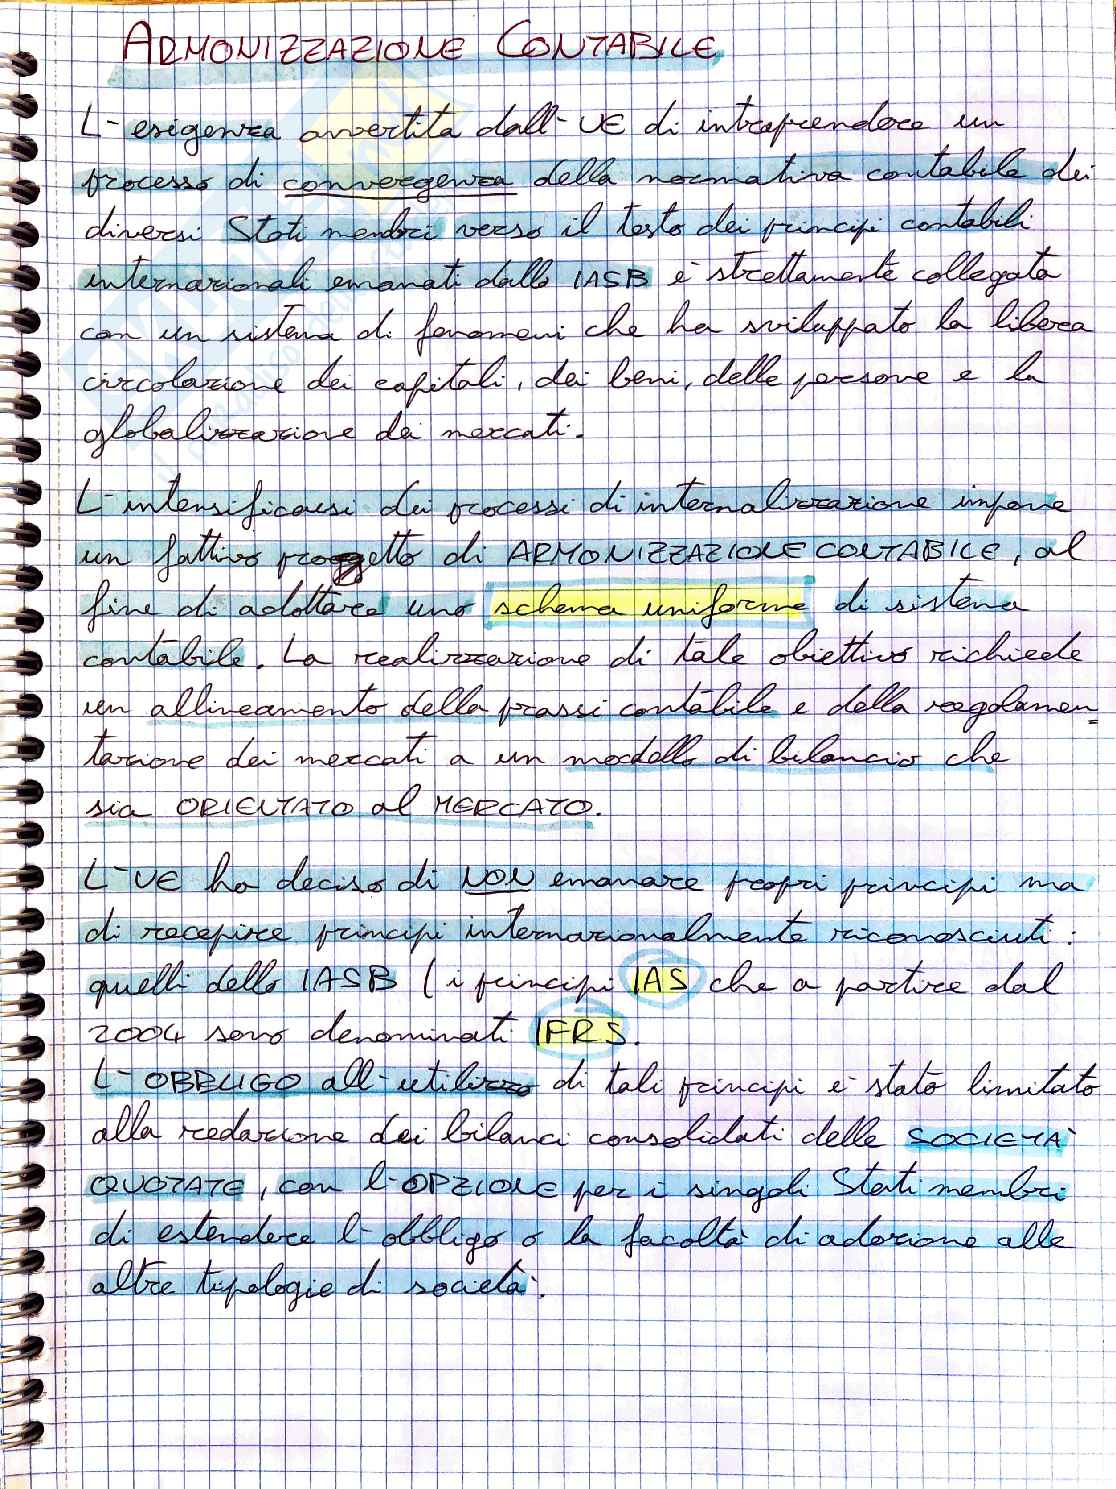 ARMONIZZAZIONE CONTABILE
L'esigenza avvertita dall'UE di intraprendere un
processo di convergenza della normativa contabile dei
diversi Stati membri verso il testo dei principi contabili
internazionali emanati dallo IASB è strettamente collegata
con un sistema di fenomeni che ha sviluppato la libera
circolazione dei capitali, dei beni, delle persone e la
globalizzazione dei mercati.
L'intensificarsi dei processi di internalizzazione impone
un fattivo progetto di ARMONIZZAZIONE CONTABILE, al
fine di adottare uno schema uniforme di sistema
contabile. La realizzazione di tale obiettivo richiede
un allineamento della prassi contabile e della regolamen=
tazione dei mercati a un modello di bilancio che
sia ORIENTATO al MERCATO.
L'UE ha deciso di NON emanare propri principi ma
di recepire principi internazionalmente riconosciuti:
quelli dello IASB (i principi IAS che a partire dal
2004 sono denominati IFRS.
L'OBBLIGO all'utilizzo di tali principi è stato limitato
alla redazione dei bilanci consolidati delle SOCIETÀ
QUOTATE, con l'OPZIONE per i singoli Stati membri
di estendere l'obbligo o la facoltà di adozione alle
altre tipologie di società.